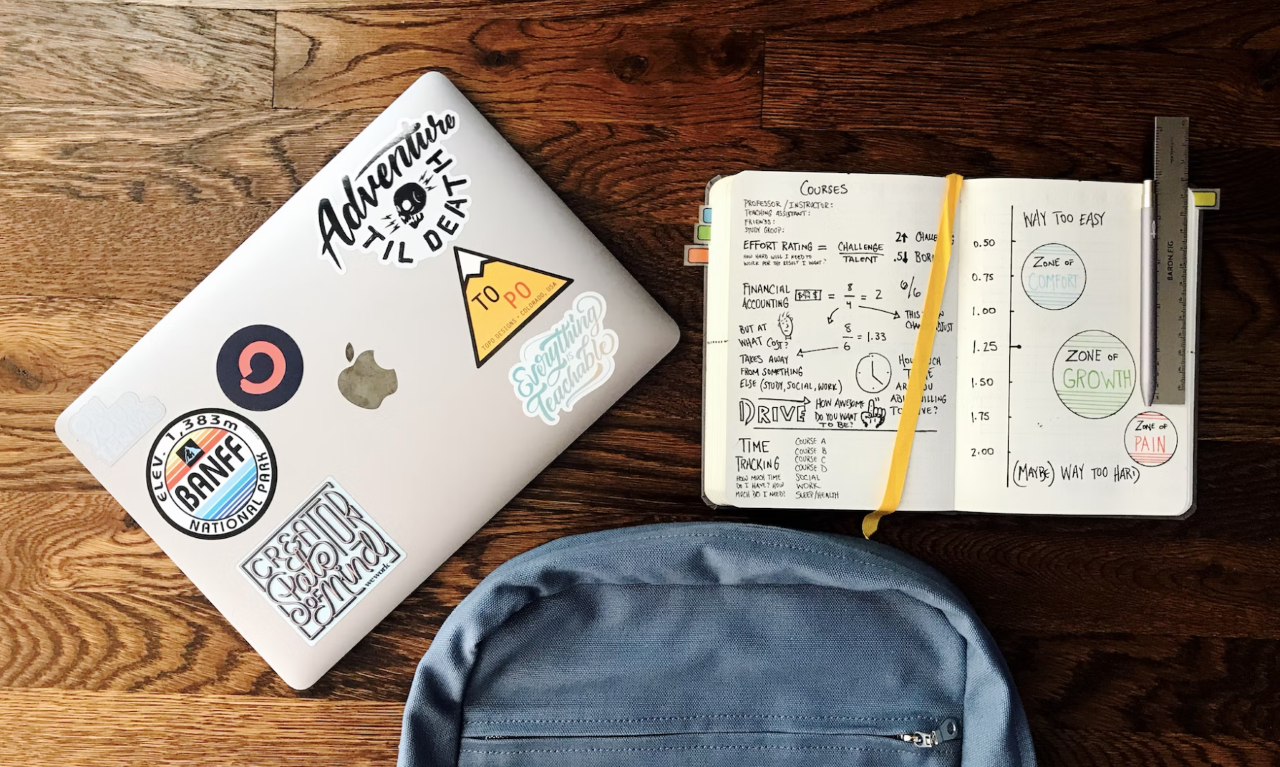 Adventure
TIL DEATH
TO PO
TOPO DESIGNS - COLORADO, USA
Everything
is
Teachable
ELEV. 1,383m
BANFF
NATIONAL PARK
CREATOR
State
OF Mind
wework
COURSES
PROFESSOR / INSTRUCTOR:
TEACHING ASSISTANT:
FRIENDS:
STUDY GROUP:
EFFORT RATING = CHALLENGE
TALENT
HOW HARD WILL I NEED TO
WORK FOR THE RESULT I WANT?
2↑
.5↓
FINANCIAL
ACCOUNTING
$ = 8
4 = 2
6/6
THIS
BUT AT
WHAT COST?
8
6 = 1.33
TAKES AWAY
FROM SOMETHING
ELSE (STUDY, SOCIAL, WORK)
HOW MUCH
TIME
ARE YOU
WILLING
TO GIVE?
DRIVE
HOW AWESOME
DO YOU WANT
TO BE?
TIME
TRACKING
HOW MUCH TIME
DO I HAVE? HOW
MUCH DO I NEED?
COURSE A
COURSE B
COURSE C
COURSE D
SOCIAL
WORK
SLEEP/HEALTH
WAY TOO EASY
0.50
0.75
1.00
1.25
1.50
1.75
2.00
ZONE OF
COMFORT
ZONE OF
GROWTH
ZONE OF
PAIN
(MAYBE) WAY TOO HARD
BARON FIG